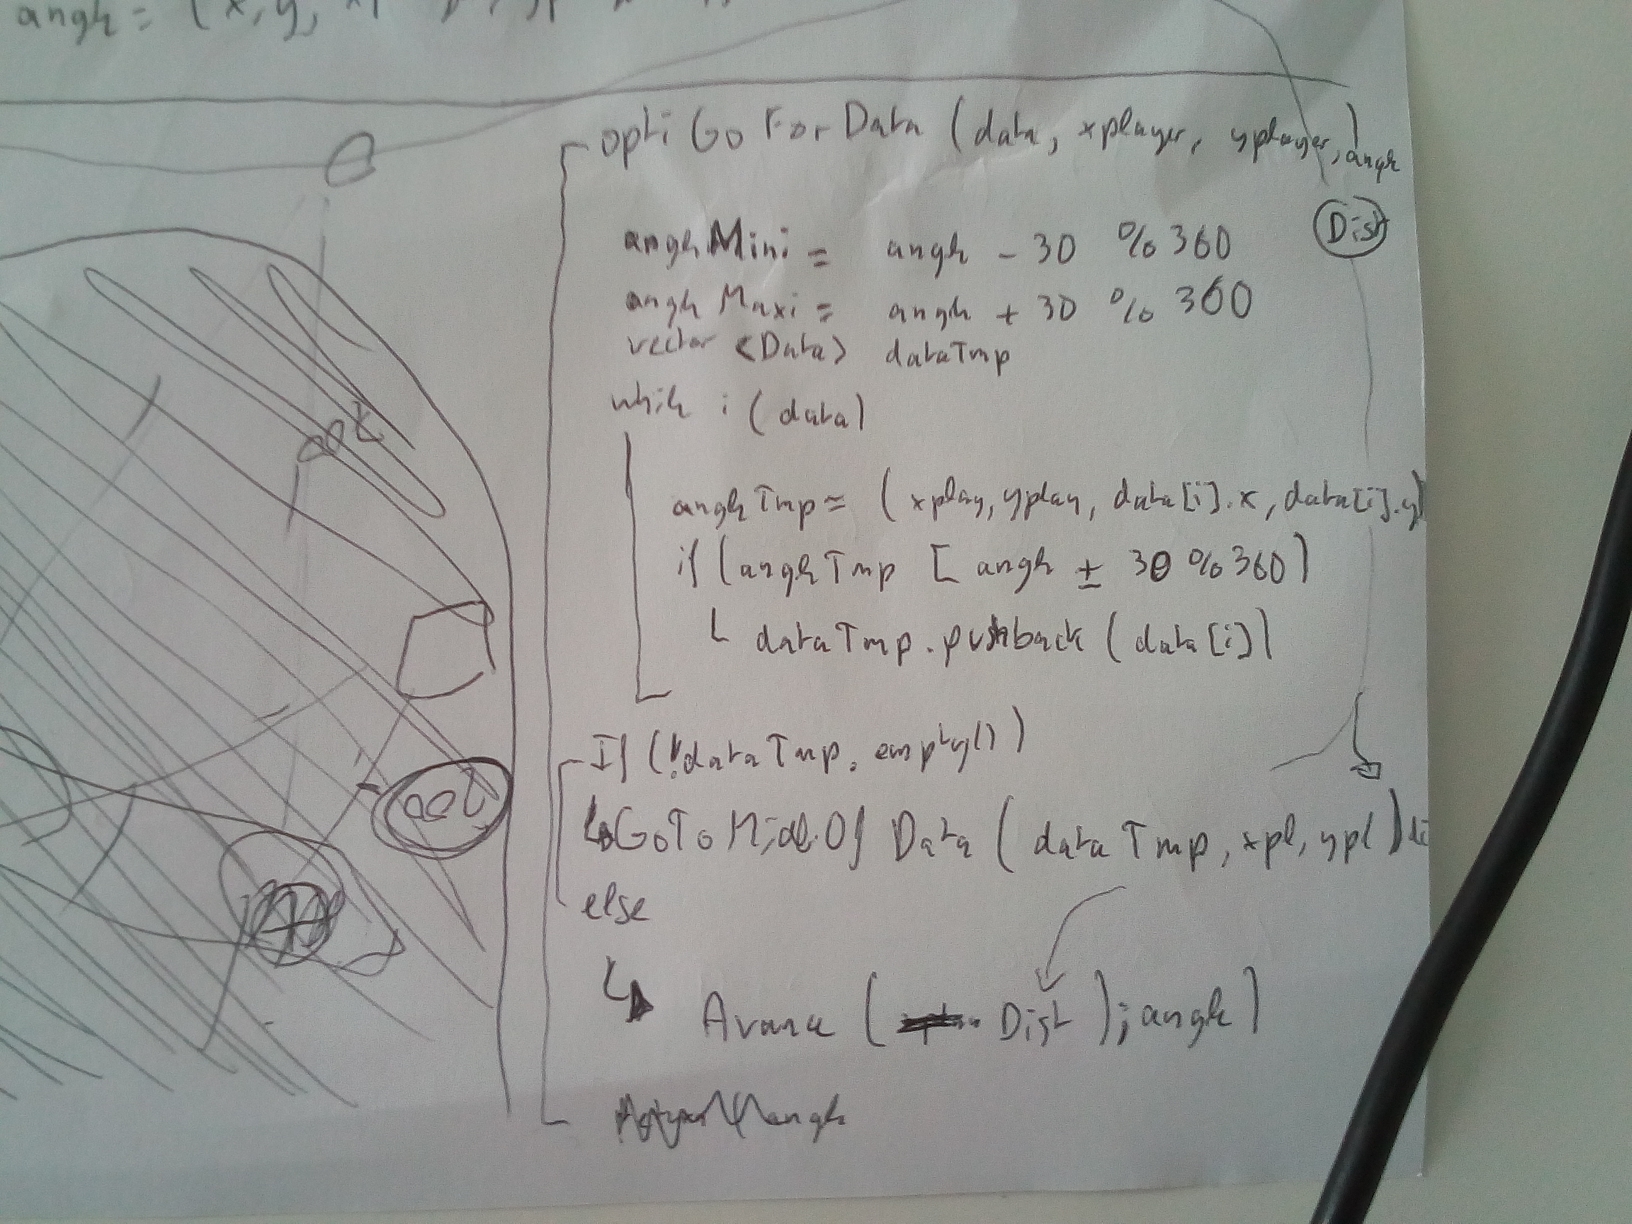 angle = (x, y,
optiGoForData (data, xplayer, yplayer, angle)
Dist
angleMini = angle - 30 % 360
angleMaxi = angle + 30 % 360
vector <Data> dataTmp
while i (data)
angleTmp = (xplay, yplay, data[i].x, data[i].y)
if (angleTmp [ angle ± 30 % 360)
dataTmp.pushback (data[i])
If (!dataTmp.empty())
GoToMidlOfData (dataTmp, xpl, ypl) di
else
Avance ( Dist ); angle)
angle